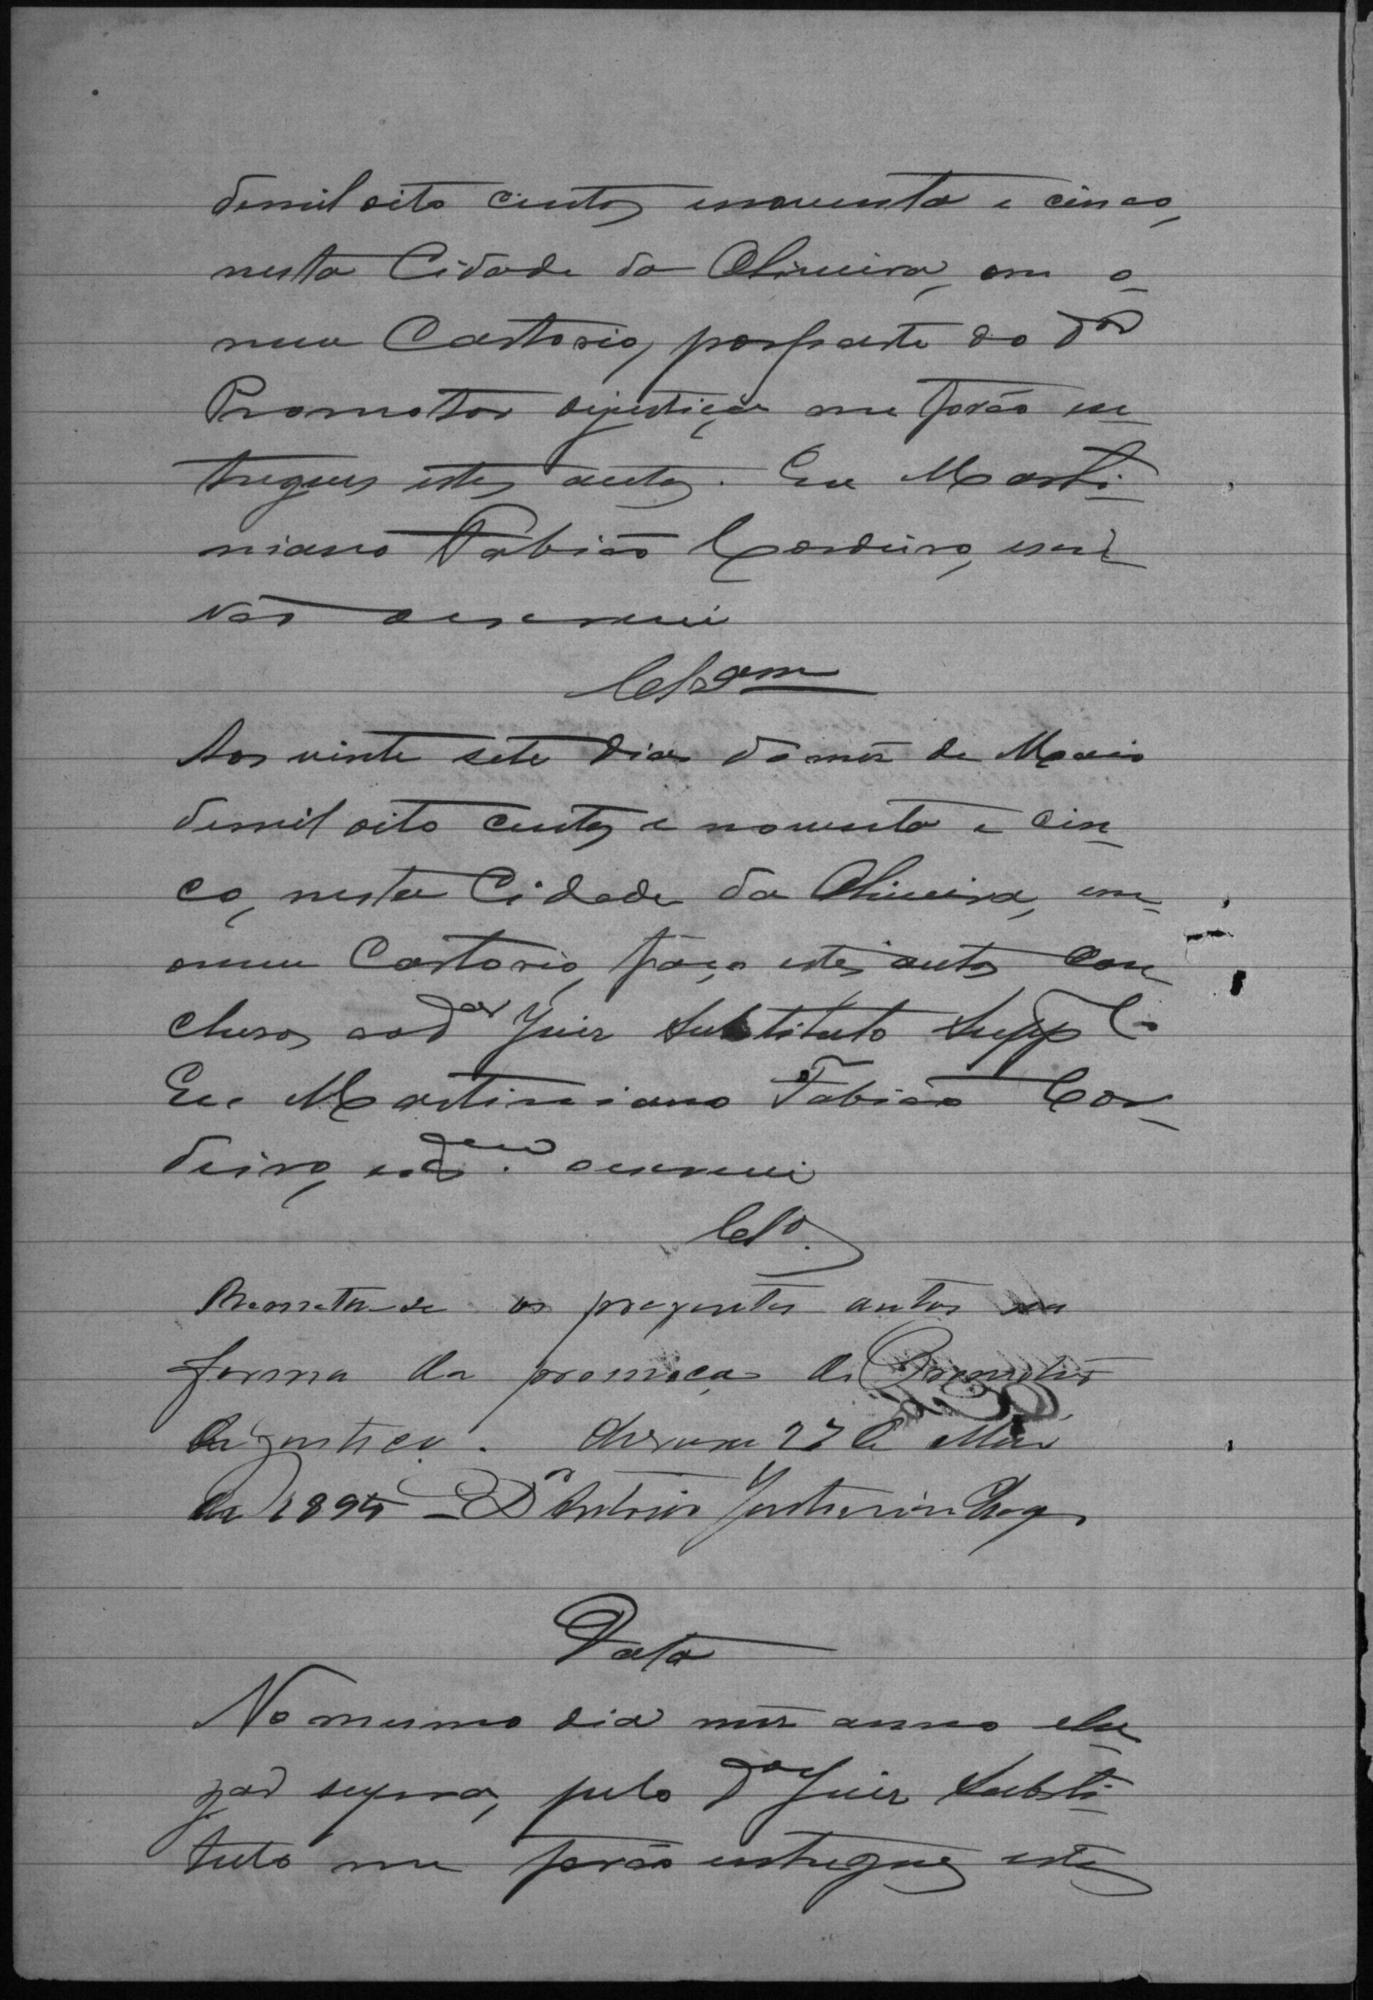 demil oito centos enoventa e cinco,
nesta Cidade da Oliveira, em o
meu Cartorio, por parte do Dor
Promotor dejustiça me forão en
tregues estes autos. Eu Marti-
niano Fabião Cordeiro, escri
vão o escrevi
Clsam
Aos vinte sete dias do mez de Maio
demil oito centos e noventa e cin
co, nesta Cidade da Oliveira, em
omeu Cartorio, faço estes autos con
clusos ao Dor Juiz Substituto Suppl
Eu Martiniano Fabião Cor-
deiro, escrivão o escrevi
Clso.
Remetta-se os presentes autos na
forma da promoção do Promotor
da Justiça. Oliveira 27 de Maio
de 1895 - Dr Antonio Justiniano
Data
No mesmo dia mez anno elu-
gar supra, pelo Dor Juiz Substi-
tuto me forão entregues estes